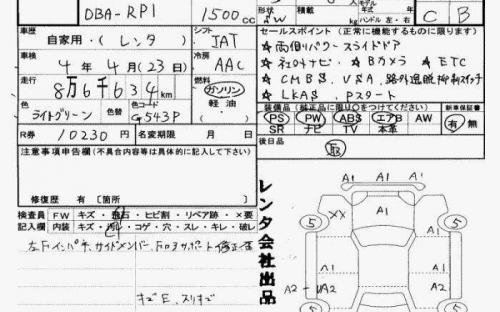 DBA-RP1
1500cc
形状 SW
積載
kg
モデル
年式
年
ハンドル 左・右
C B
車歴
自家用・(レンタ)
シフト
JAT
車検
4年 4月(23日)
冷房
AAC
走行
8万6千634km
燃料
ガソリン
軽油
色
ライトグリーン
色替
色コード
G543P
R券 10230円
名変期限 月 日
セールスポイント (正常に機能するものに限ります)
☆両側パワースライドドア
☆社外ナビ ☆Bカメラ ☆ETC
☆CMBS、VSA、路外逸脱抑制スイッチ
☆LKAS、Pスタート
装備品 (純正品に限り○をつけてください)
新車保証書
PS PW ABS エアB AW
SR ナビ TV 本革
有・無
後日品
取
注意事項申告欄 (不具合内容等は具体的に記入して下さい)
修復歴 有〔箇所
検査員記入欄
FW キズ・飛石・ヒビ割・リペア跡・×要
内装 キズ・汚レ・コゲ・穴・スレ・キレ・破レ
左Fインパネ、サイドメンバー、Fコアサポート修正有
キズE、スリキズ
レンタ会社出品
A1 A1
A1
5 XX A1 5
A1 A1
A2 UA2 A1
5 5